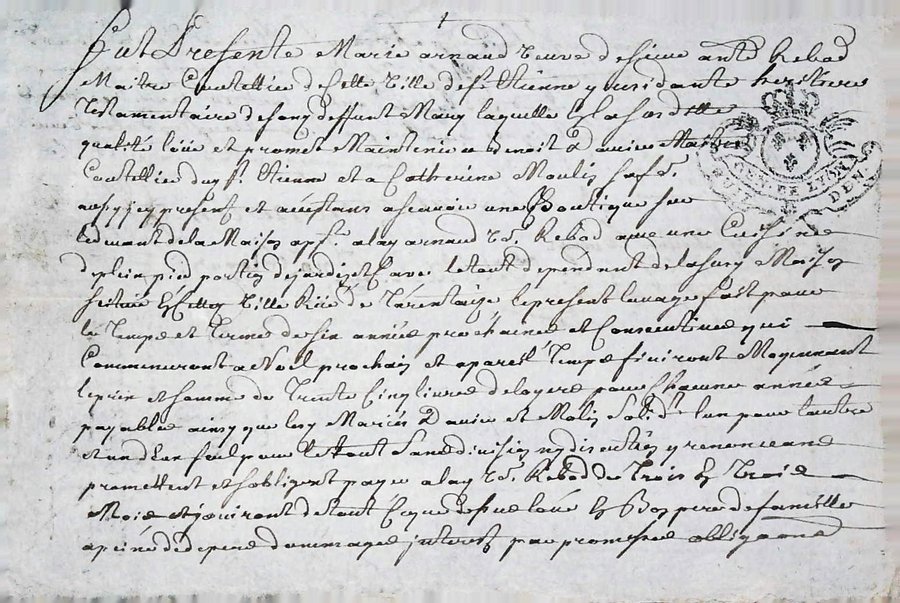 fut Presente Marie arnaud veuve de sieur ante Rebod
Maitre Coutellier de cette Ville de st etienne y residante heritiere
testamentaire de son deffunt Mary laquelle en la susditte
qualité loue et promet Maintenir a benoit Davier Maitre
Coutellier du st. Etienne et a Catherine Moulin sa fe.
assy jcy present et acceptans ascavoir une Boutique sur
le devant de la Maison apt. a lad arnaud ve. Rebod avec une Cuisine
de plein pied portion de jardin et Cave le tout dependant de la susd Maison
située en cette Ville Rüe de Tarentaize le present louage fait pour
le temps et terme de six années prochaines et Consecutives qui
Commenceront a Noel prochain et a pareil temps finiront Moyennant
le prix et somme de trente Cinq livres de loyers pour Chacune année
payables ainsy que lesd Mariés Davier et Molin solidt. l'un pour l'autre
et un d'eux seul pour le tout sans division ny discution y renonceans
promettent et s'obligent payer a lad ve. Rebod de Trois en Trois
Mois et jouiront de tout Ce que dessus loué en Bon pere de famille
a peine de depens dommages interest par promesses obligaons
GEN. DE LYON